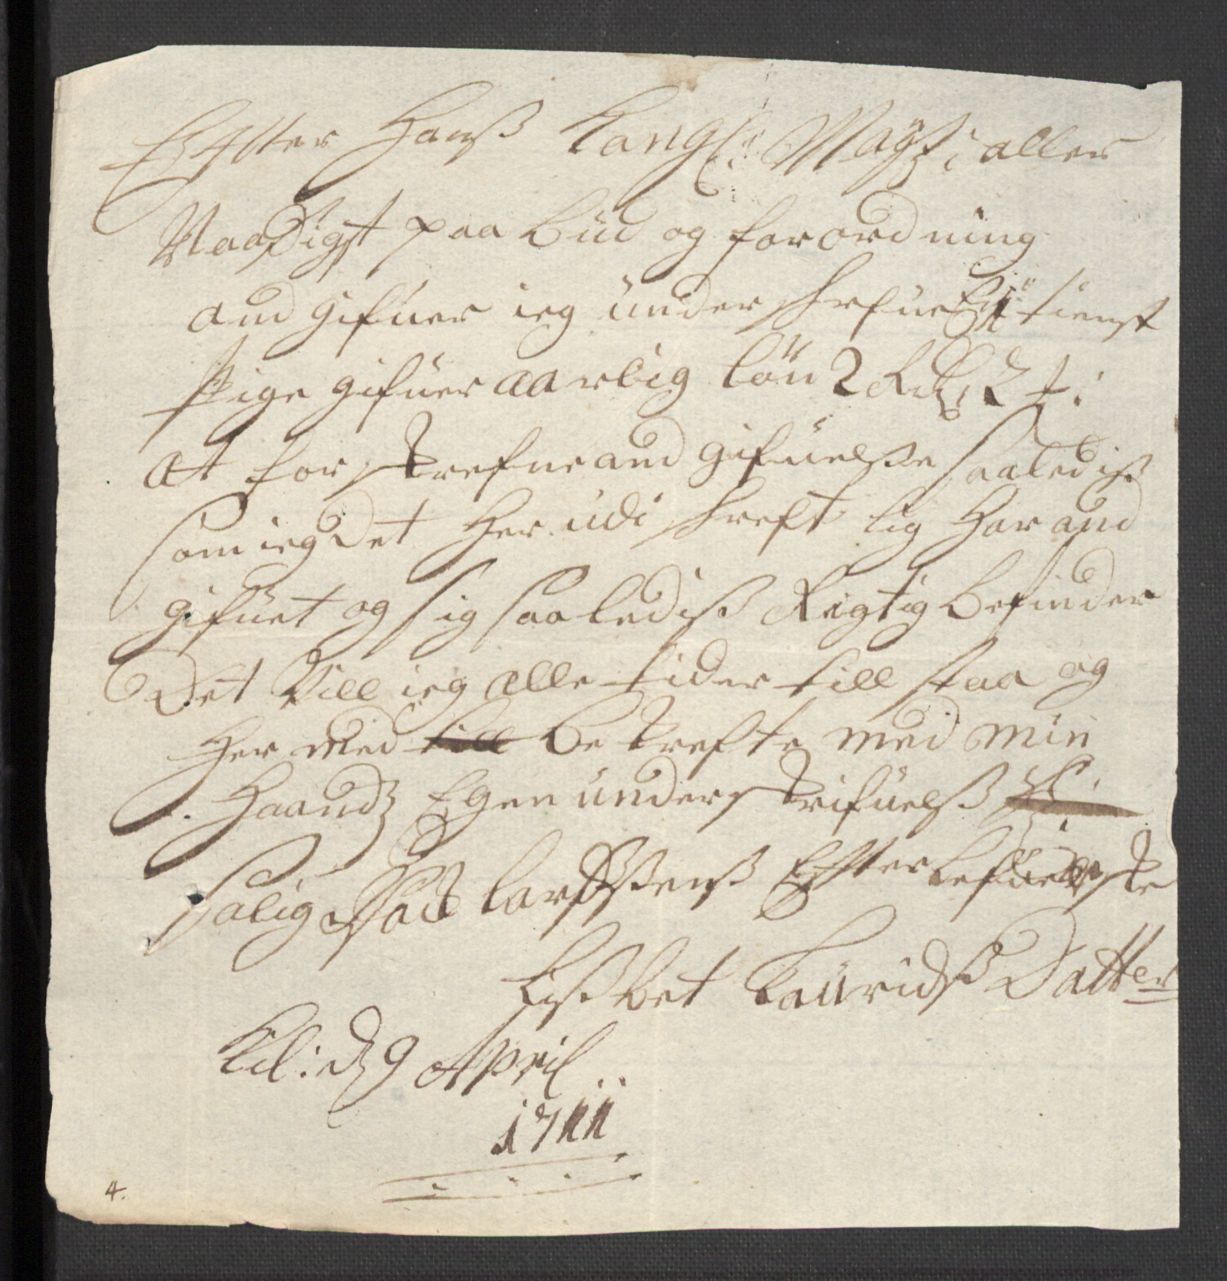 Effter Hanß Kongl: Maÿst: aller
Naadigst paa bud og forordning
and gifuer ieg under skrefuet 1 tienst
pige gifuer aarlig løn 2 Rdr 2 ₰:
at for skrefne and gifuelße saaledis
som ieg det her udi skreft lig har and
gifuet og sig saaledis Rigtig befinder
Det Vill ieg alle tider till staa og
her med till be krefte med min
Haandz Egen under skrifuelß
Salig Larßßenß Effterlefuerske
Lißbet Lauridß Datter
d 9 April
1711
4.